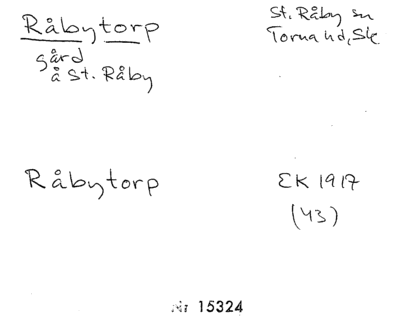 Råbytorp
St. Råby sn
gård
Torna hd, Sk.
å St. Råby
Råbytorp
EK 1917
(43)
Nr 15324